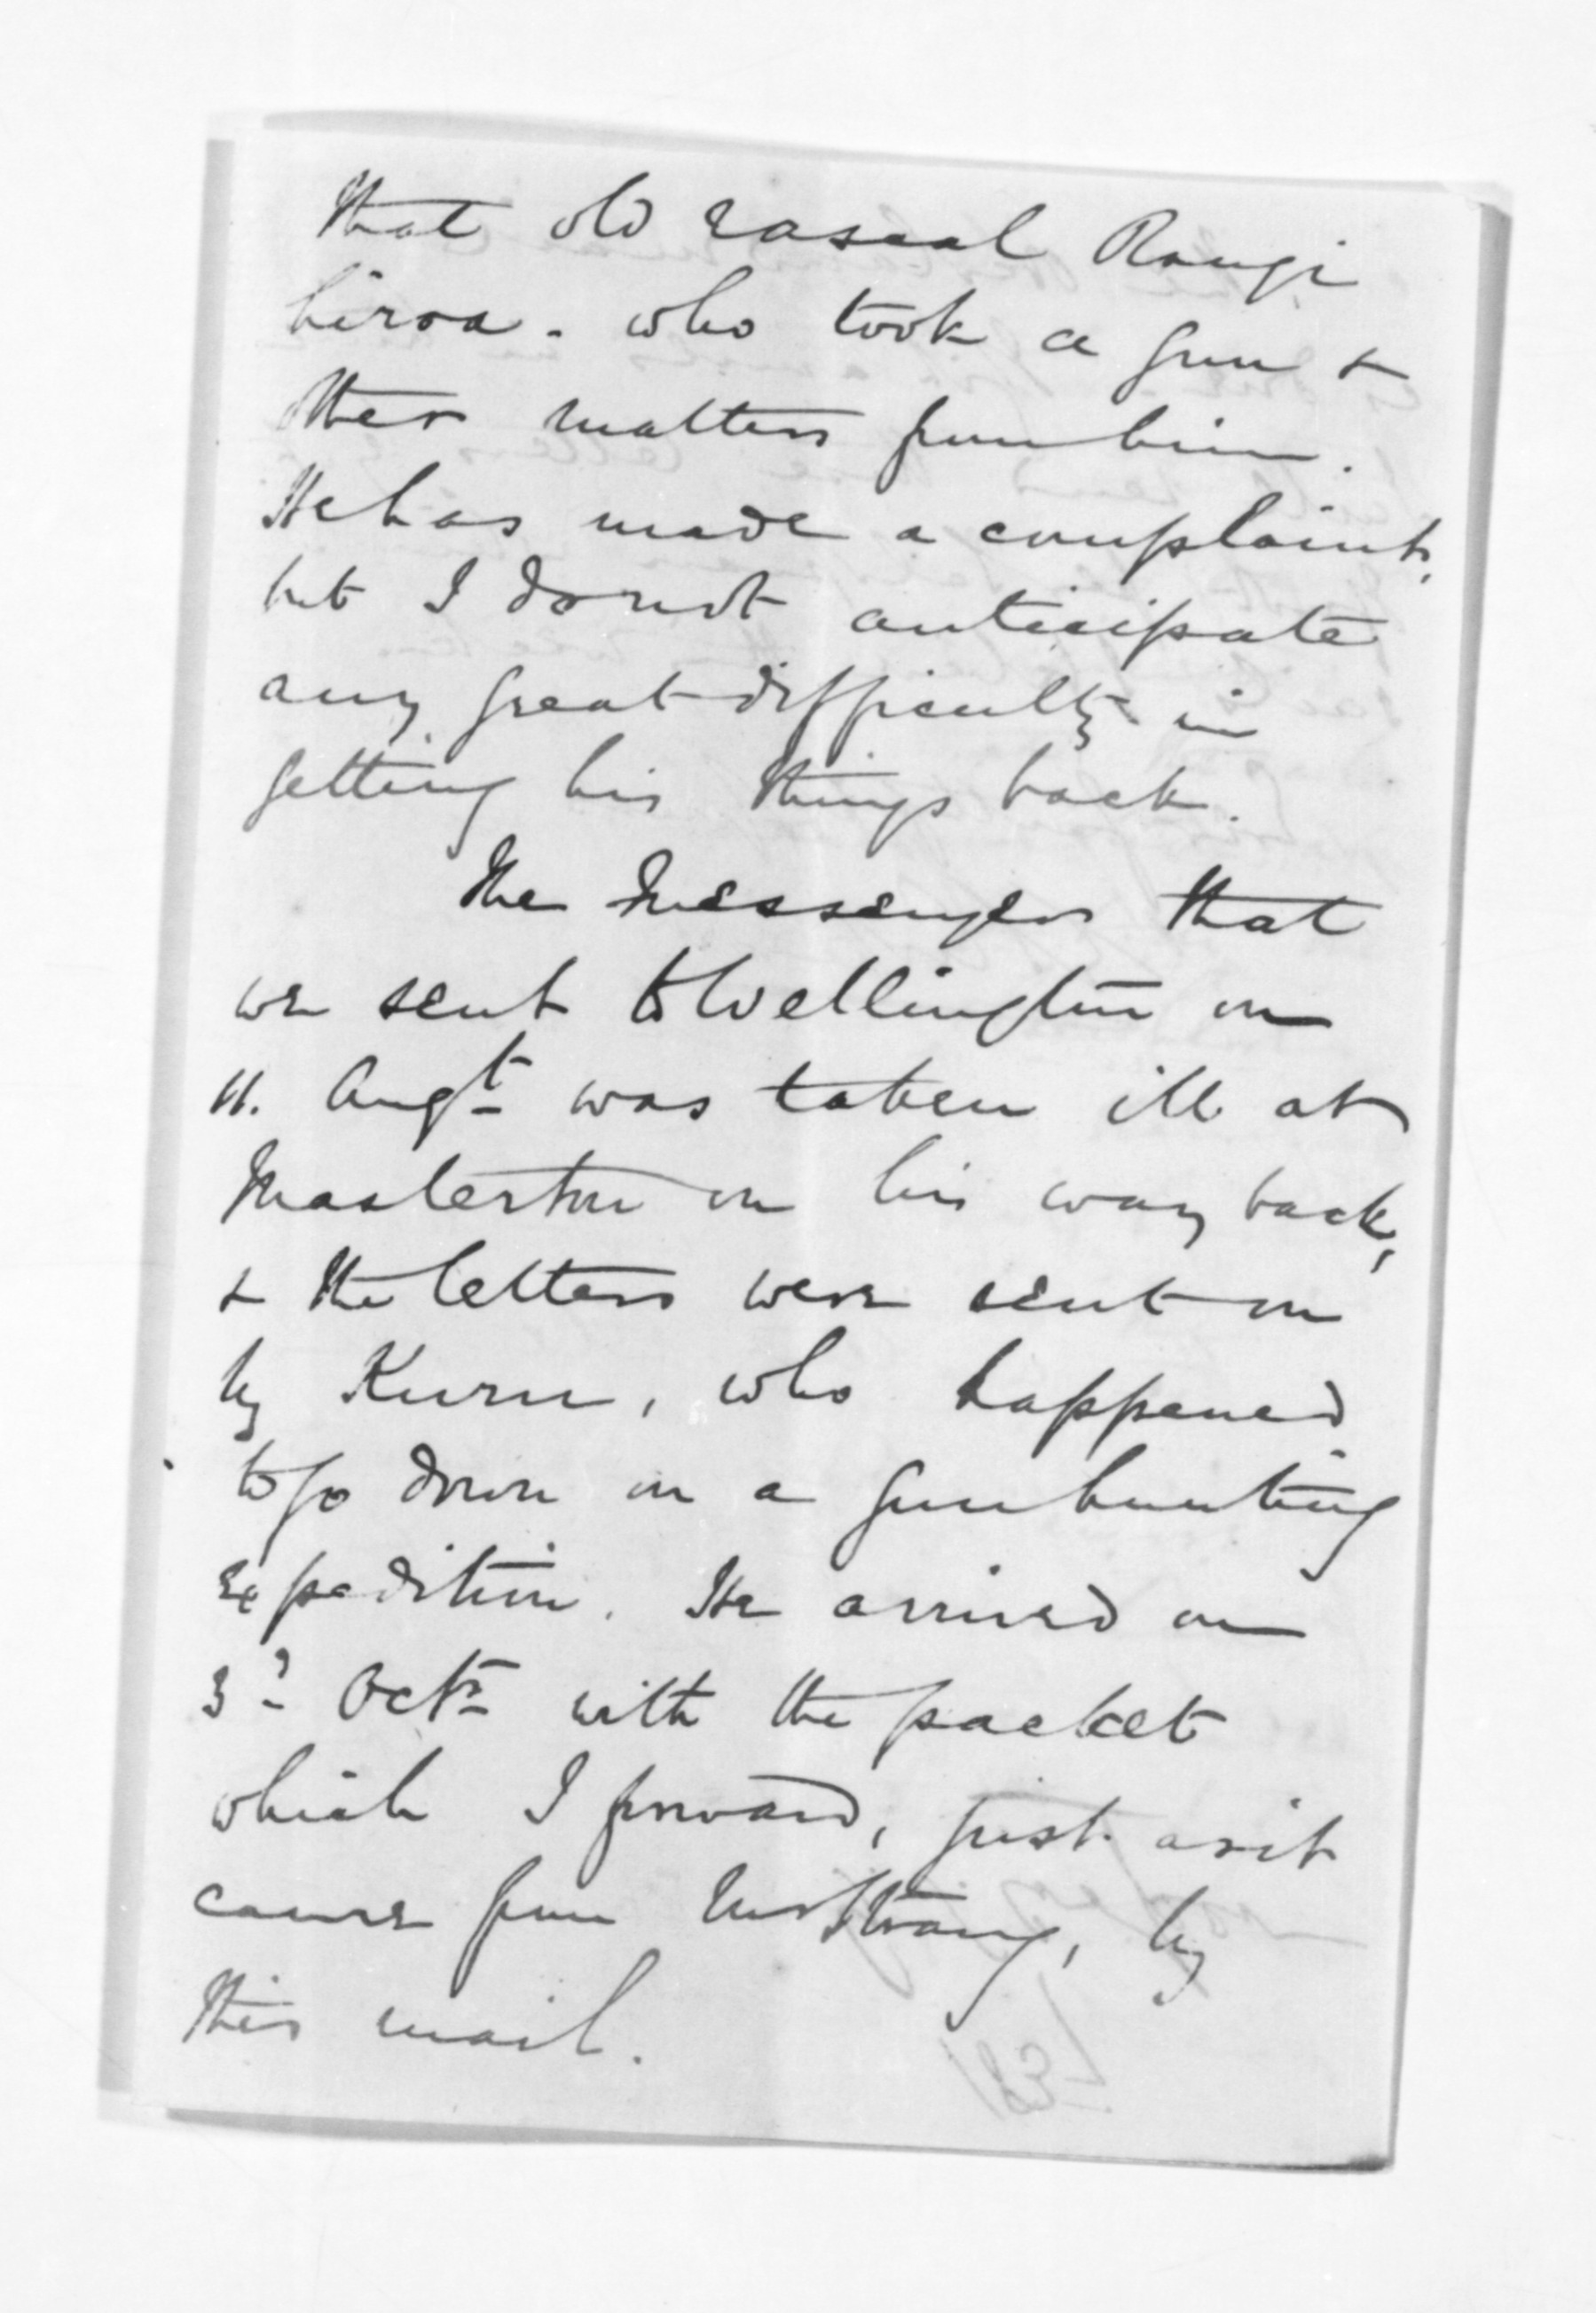 that old rascal Rangi
hiroa. who took a gun &
other matters from him.
He has made a complaint,
but I do not anticipate
any great difficulty in
getting his things back.
The Messenger that
we sent to Wellington on
11. Augt was taken ill at
Masterton on his way back,
& the letters were sent on
by Kuru, who happened
to go down on a gun hunting
expedition. He arrived on
3d Octr with the packet
which I forward, just as it
came from Mr Strang, by
this mail.